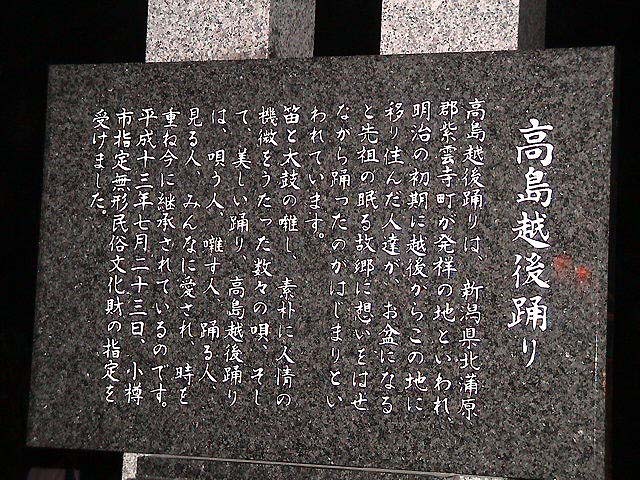 高島越後踊り
高島越後踊りは、新潟県北蒲原
郡紫雲寺町が発祥の地といわれ、
明治の初期に越後からこの地に
移り住んだ人達が、お盆になる
と先祖の眠る故郷に想いをはせ
ながら踊ったのがはじまりとい
われています。
笛と太鼓の囃し、素朴に人情の
機微をうたった数々の唄、そし
て、美しい踊り、高島越後踊り
は、唄う人、囃す人、踊る人、
見る人、みんなに愛され、時を
重ね今に継承されているのです。
平成十三年七月二十三日、小樽
市指定無形民俗文化財の指定を
受けました。